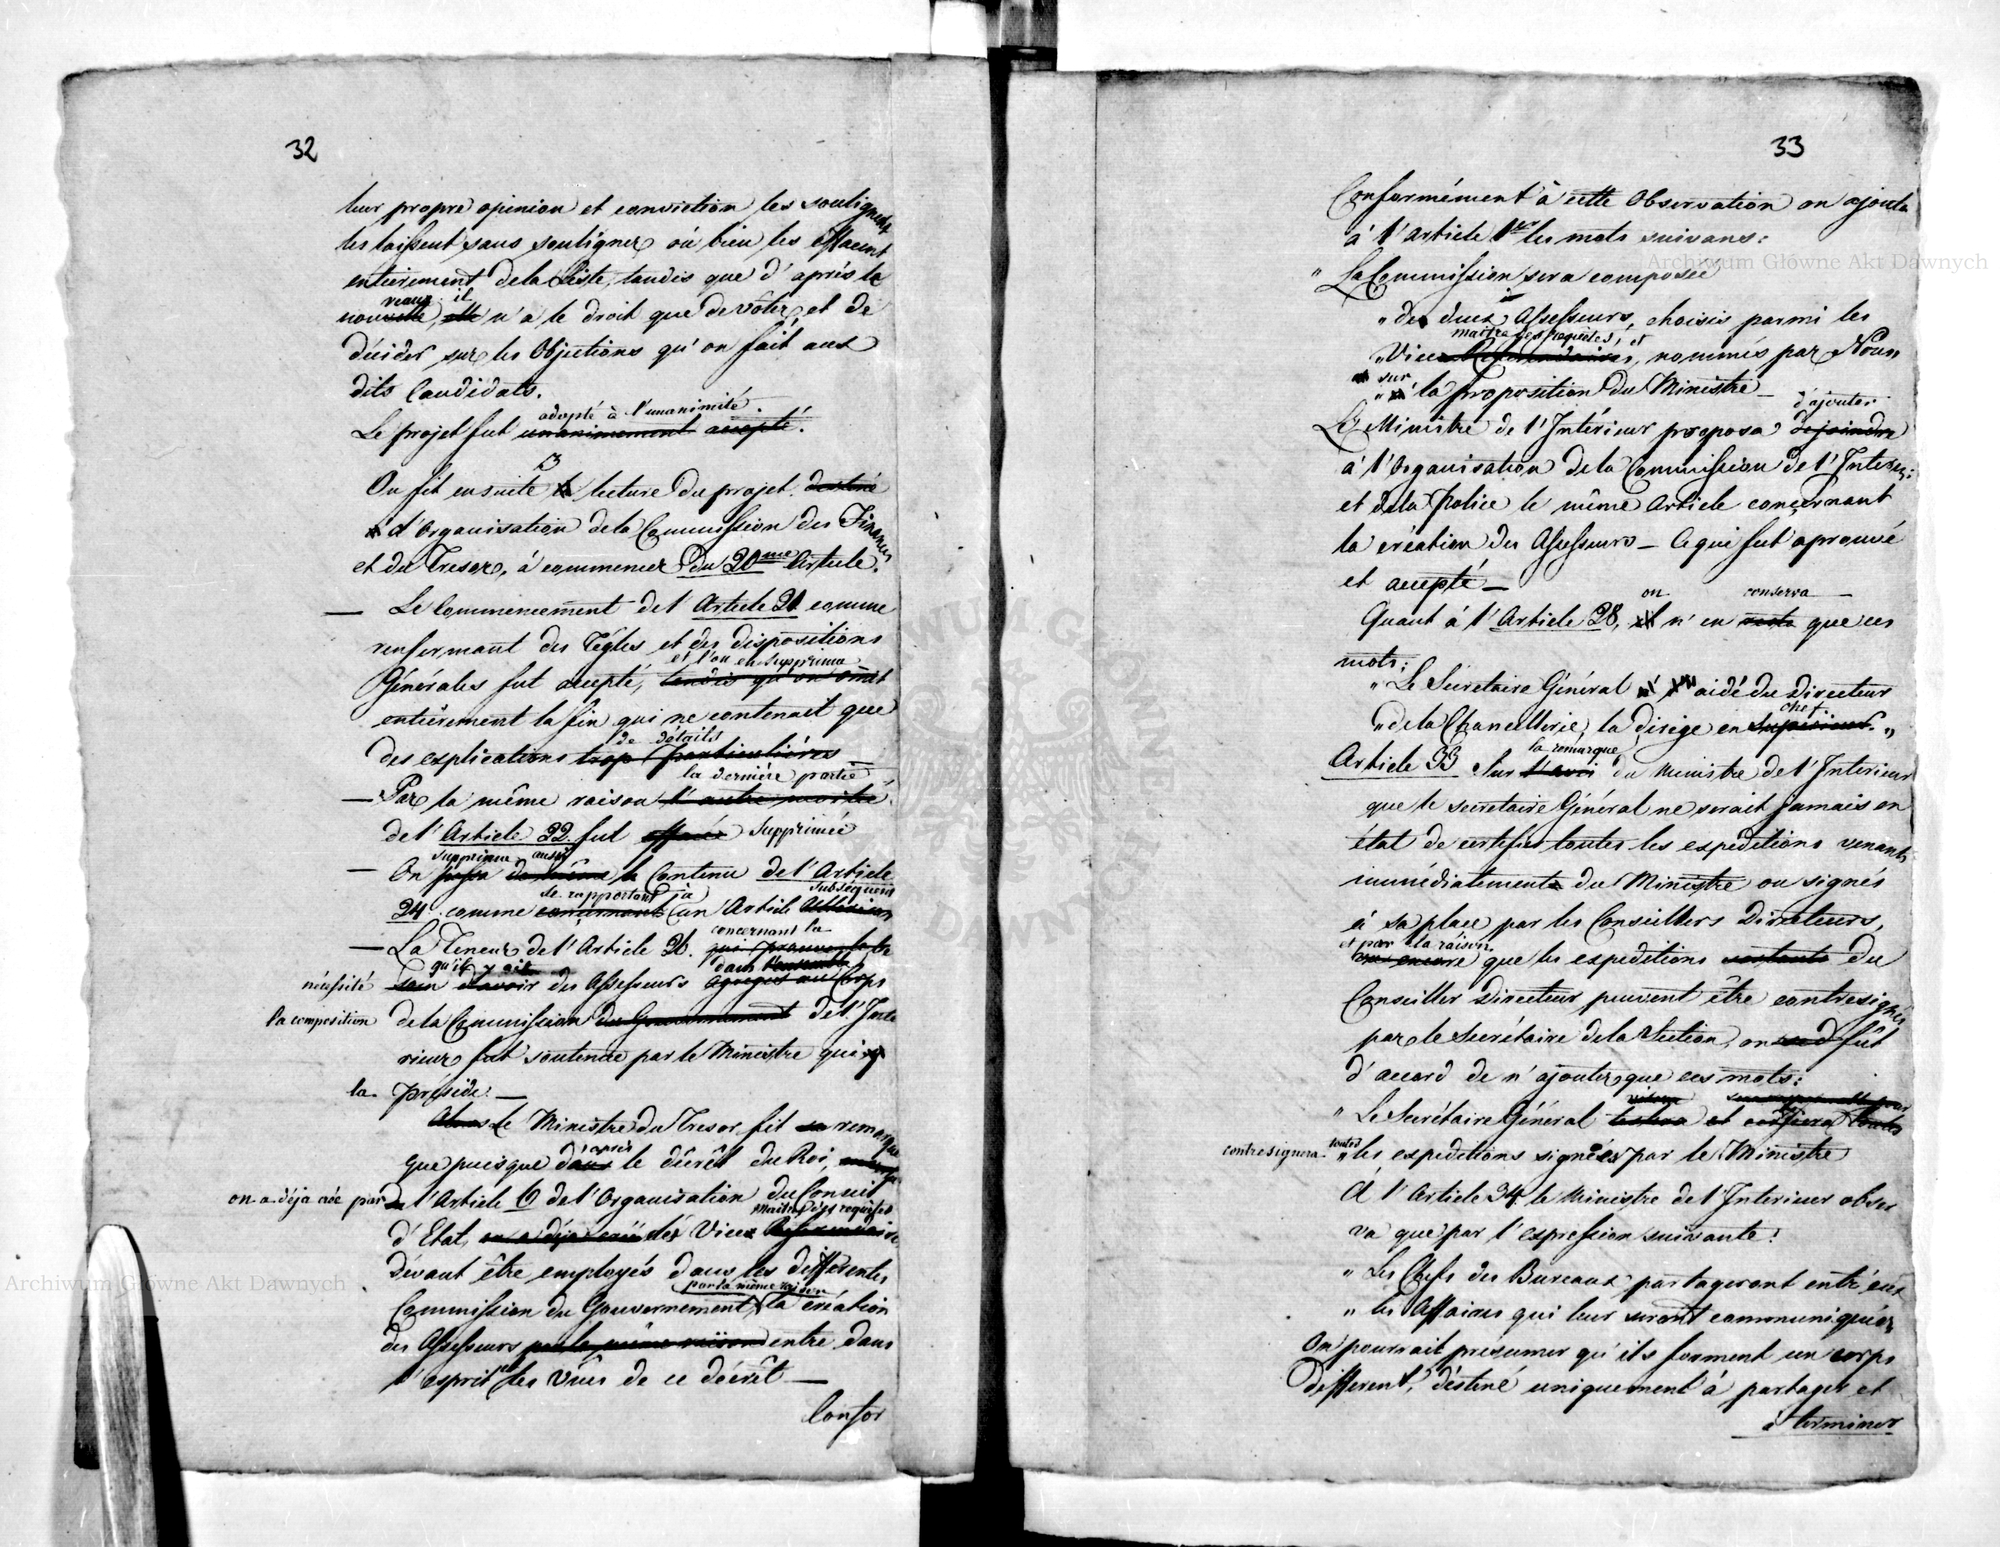 32
leur propre opinion et conviction les soulignent
les laissent sans souligner où bien les effacent
entièrement de la Liste, tandis que d'après la
veaux il
nouvelle, elle n'a le droit que de vôter, et de
décider sur les Objections qu'on fait aux
dits Candidats.
adopté à l'unanimité.
Le projet fut unanimement accepté.
On fit ensuite la lecture du projet destiné
à d'Organisation de la Commission des Finances
et du Tresor, à commencer du 20me Article.
— Le Commencement de l'Article 21 comme
renfermant des règles et des dispositions
et l'on en supprima
Générales fut accepté, tandis qu'on omit
entièrement la fin qui ne contenait que
de détails
des explications trop particulières
la dernière partie
— Par la même raison l'autre moitié
de l'Article 22 fut effacée supprimée
supprima aussi
— On passa de même le Contenu de l'Article
de rapportant à subséquent
24. comme concernant un Article Ultérieur
concernant la
— La Teneur de l'Article 26. qui prouve le be
qu'il y ait dans l'ensemble
nécessité soin d'avoir des Assesseurs agrégés au Corps
la composition de la Commission du Gouvernement de l'Inté
rieur fut soutenue par le Ministre qui y
la préside —
Alors le Ministre du Tresor fit sa remarque
après
que puisque dans le décrèt du Roi,
on a déja crée par de l'Article 6 de l'Organisation du Conseil
Maitres des requêtes
d'Etat, on a déja créé des Vices Référendaires
dévant être employés dans les differentes
par la même raison
Commission du Gouvernement, la création
des Assesseurs par la même raison entre dans
et
l'esprit les vûes de ce décrèt —
Confor
33
Conformément à cette Observation on ajouta
à l'Article 1er les mots suivans:
" La Commission sera composée
" de deux Assesseurs, choisis parmi les
maitre des requêtes, et
" Vices Référendaires, nommés par Nous
sur
" à la proposition du Ministre —
d'ajouter
Le Ministre de l'Intérieur proposa de joindre
à l'Organisation de la Commission de l'Interieur
et de la Police le même Article concernant
la création des Assesseurs — Ce qui fut aprouvé
et accepté —
on conserva —
Quant à l'Article 28, il n'en reste que ces
mots:
" Le Secretaire Général aidé du Directeur
chef
" de la Chancellerie, la dirige en Supérieur. "
la remarque
Article 33 Sur l'avis du Ministre de l'Interieur
que le secretaire Général ne serait jamais en
état de certifier toutes les expeditions venants
immédiatement du Ministre ou signés
à sa place par les Conseillers Directeurs,
et par la raison
ou encore que les expeditions sortants du
Conseiller Directeur peuvent être contresignés
par le Secrétaire de la Section, on fut
d'accord de n'ajouter que ces mots:
" Le Secrétaire Général et certifiera toutes
contresignera toutes " les expeditions signées par le Ministre
A l'Article 34. le Ministre de l'Interieur obser
va que par l'expression suivante:
" Les Chefs des Bureaux partageront entr'eux
" les Affaires qui leur seront communiquées
On pourrait présumer qu'ils forment un corps
different, destiné uniquement à partager et
à terminer